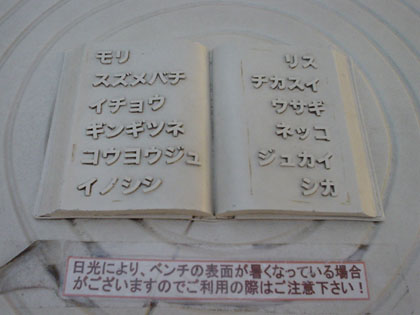 モリ
スズメバチ
イチョウ
ギンギツネ
コウヨウジュ
イノシシ
リス
チカスイ
ウサギ
ネッコ
ジュカイ
シカ
日光により、ベンチの表面が暑くなっている場合
がございますのでご利用の際はご注意下さい！